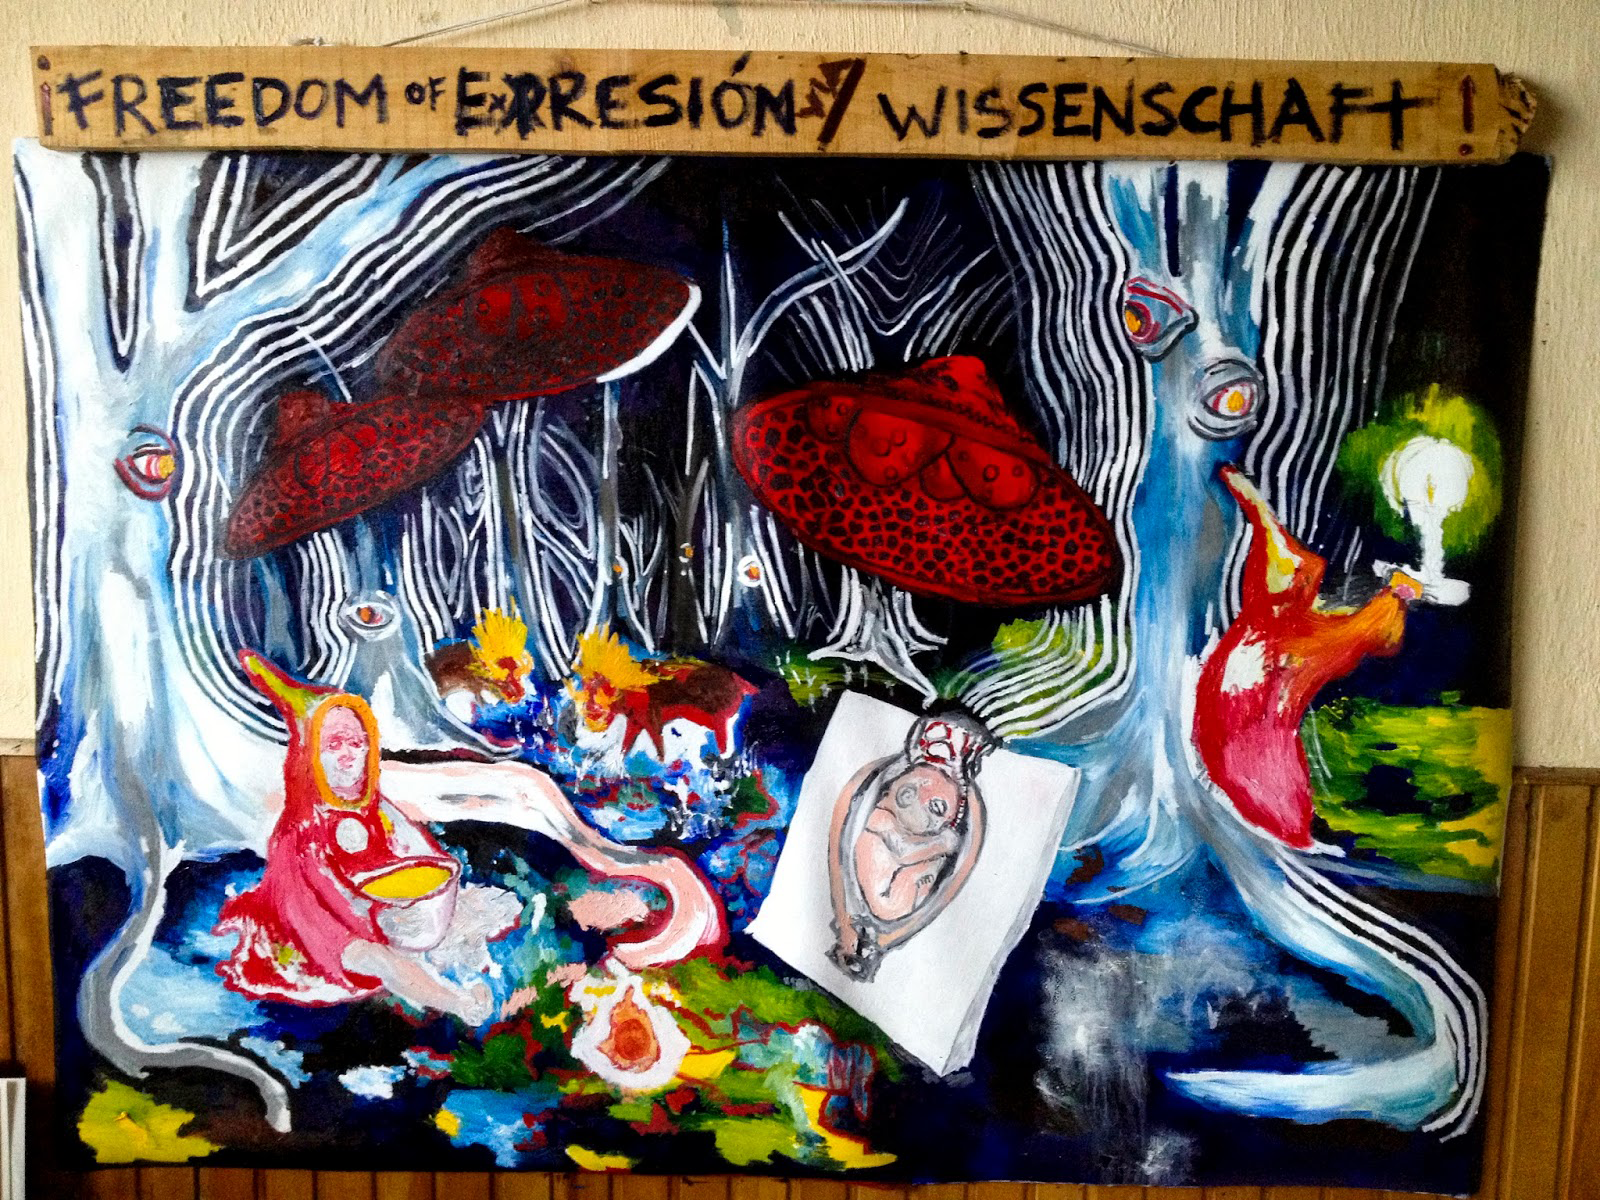 ¡FREEDOM OF EXPRESIÓN Y WISSENSCHAFT!